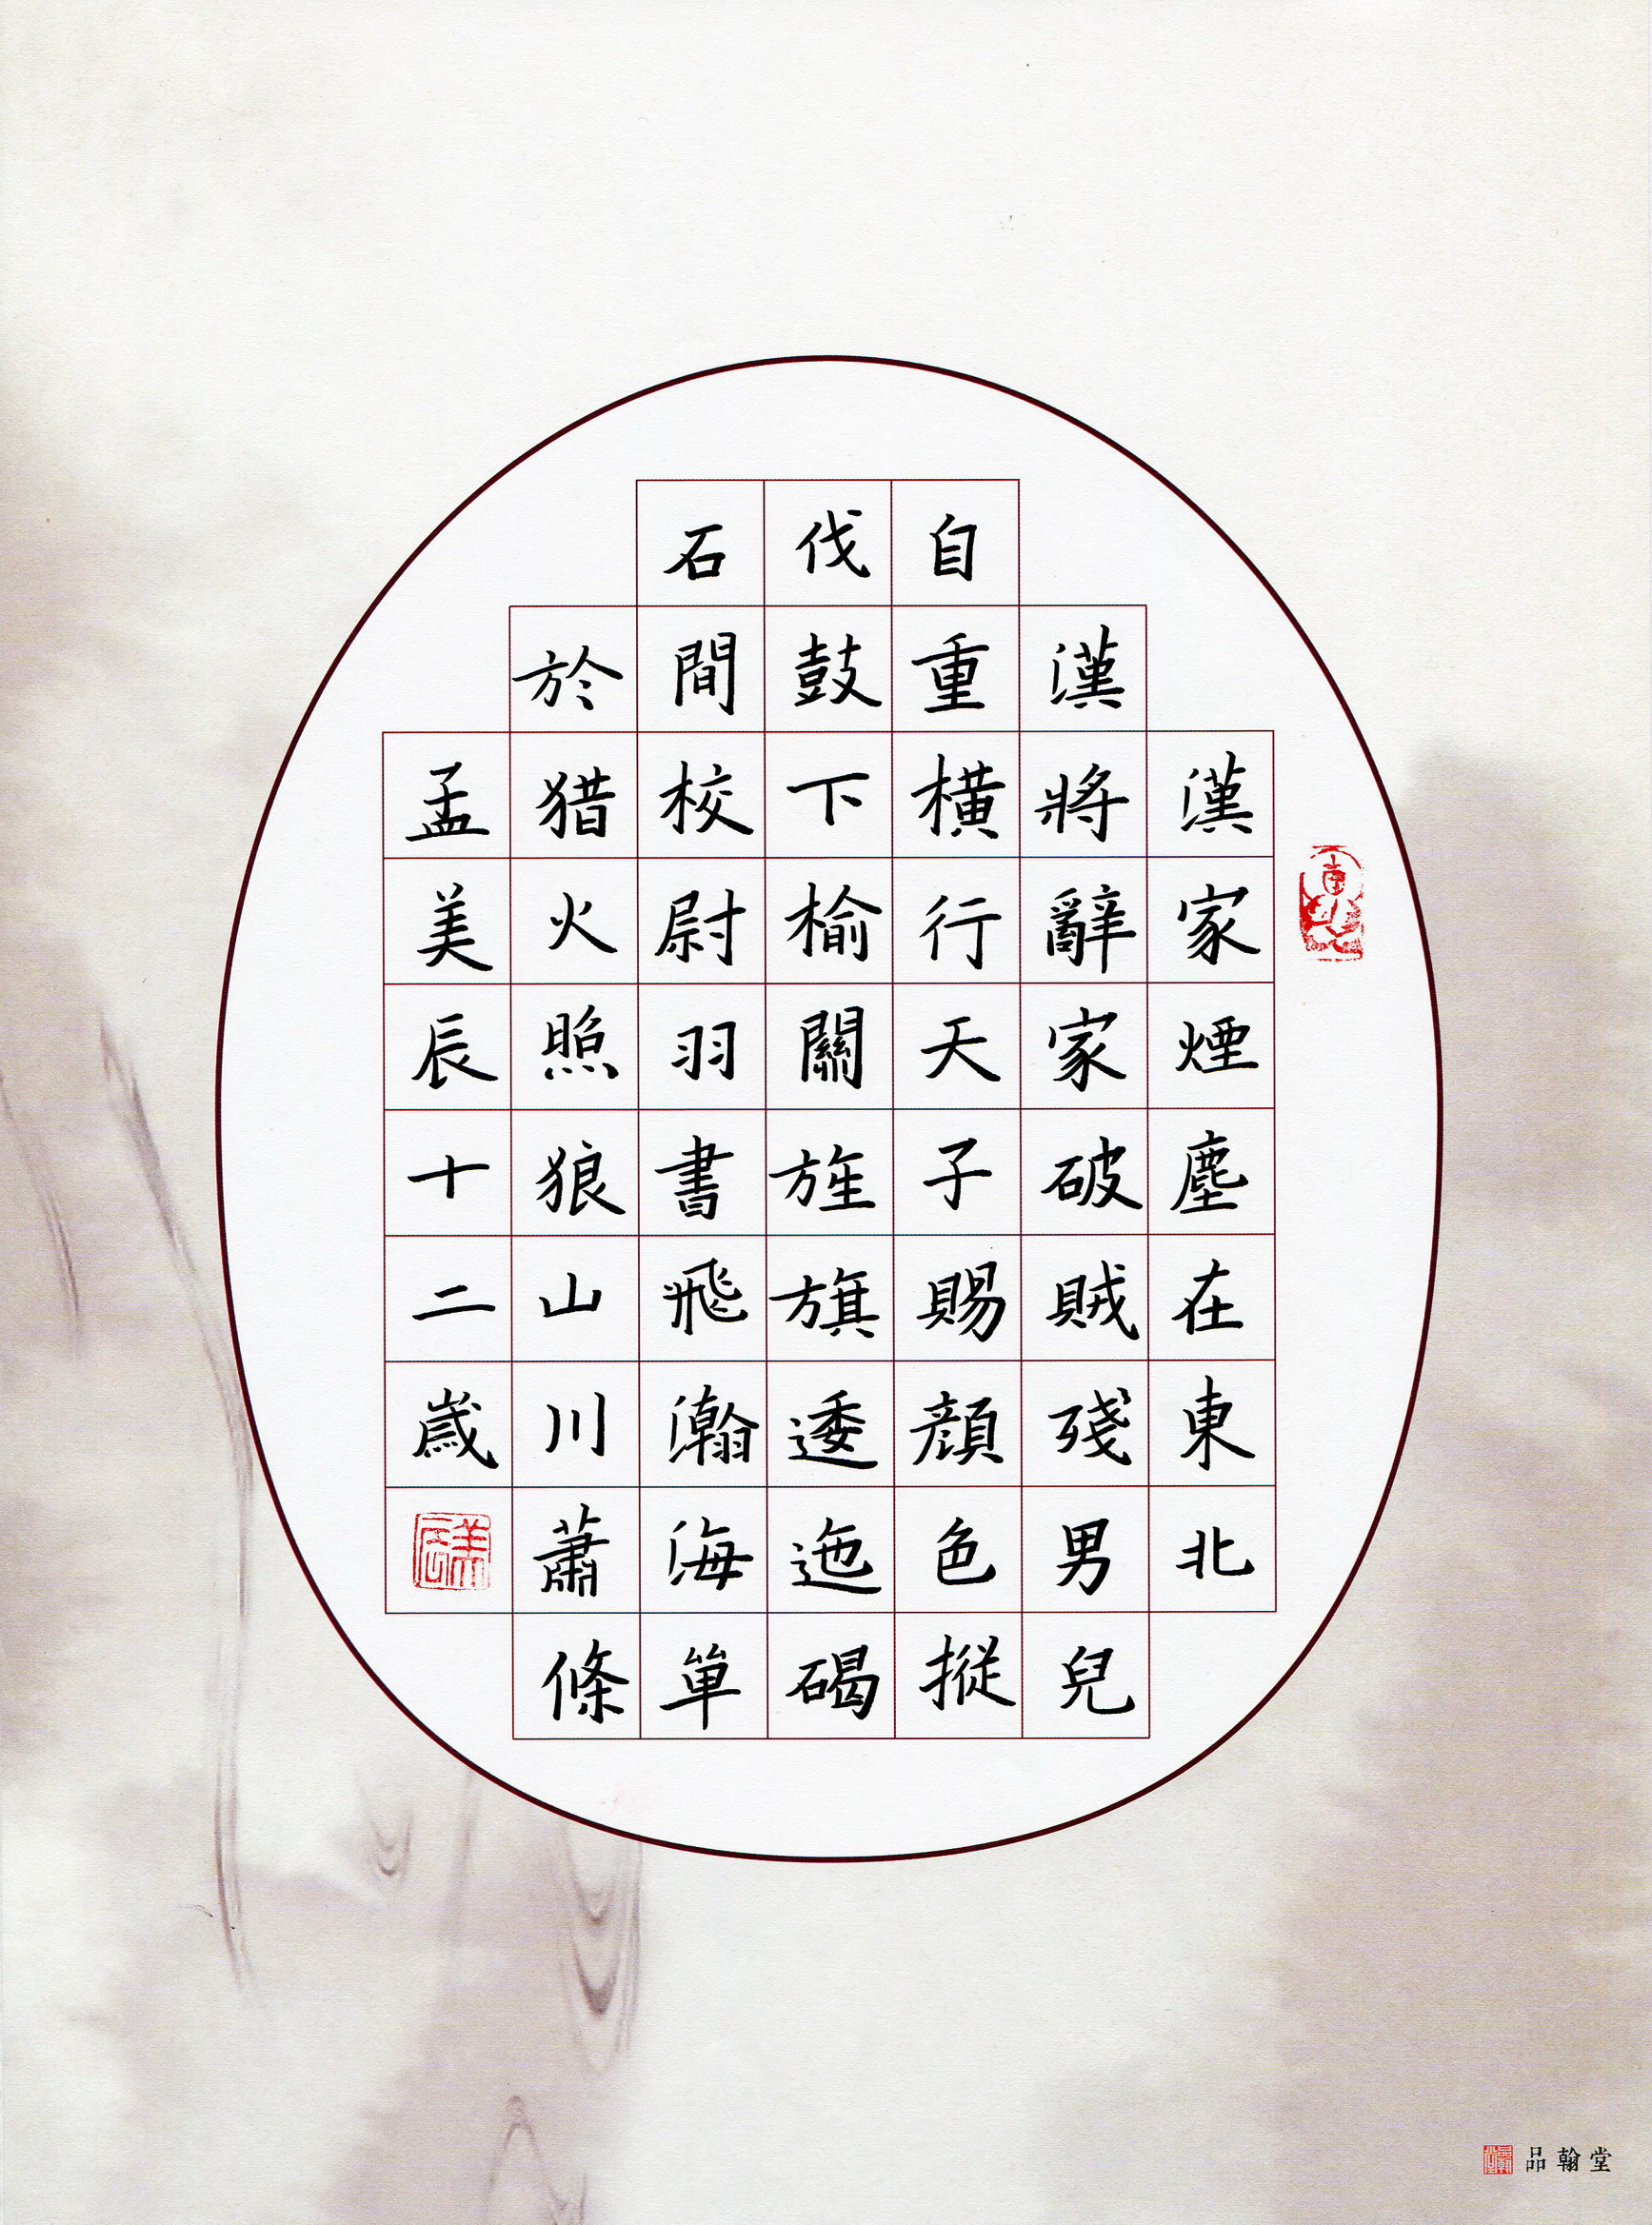 漢家煙塵在東北
漢將辭家破賊殘男兒
自重橫行天子賜顏色摐
伐鼓下榆關旌旗逶迤碣
石間校尉羽書飛瀚海單
於猎火照狼山川蕭條
孟美辰十二歲
美辰
品翰堂